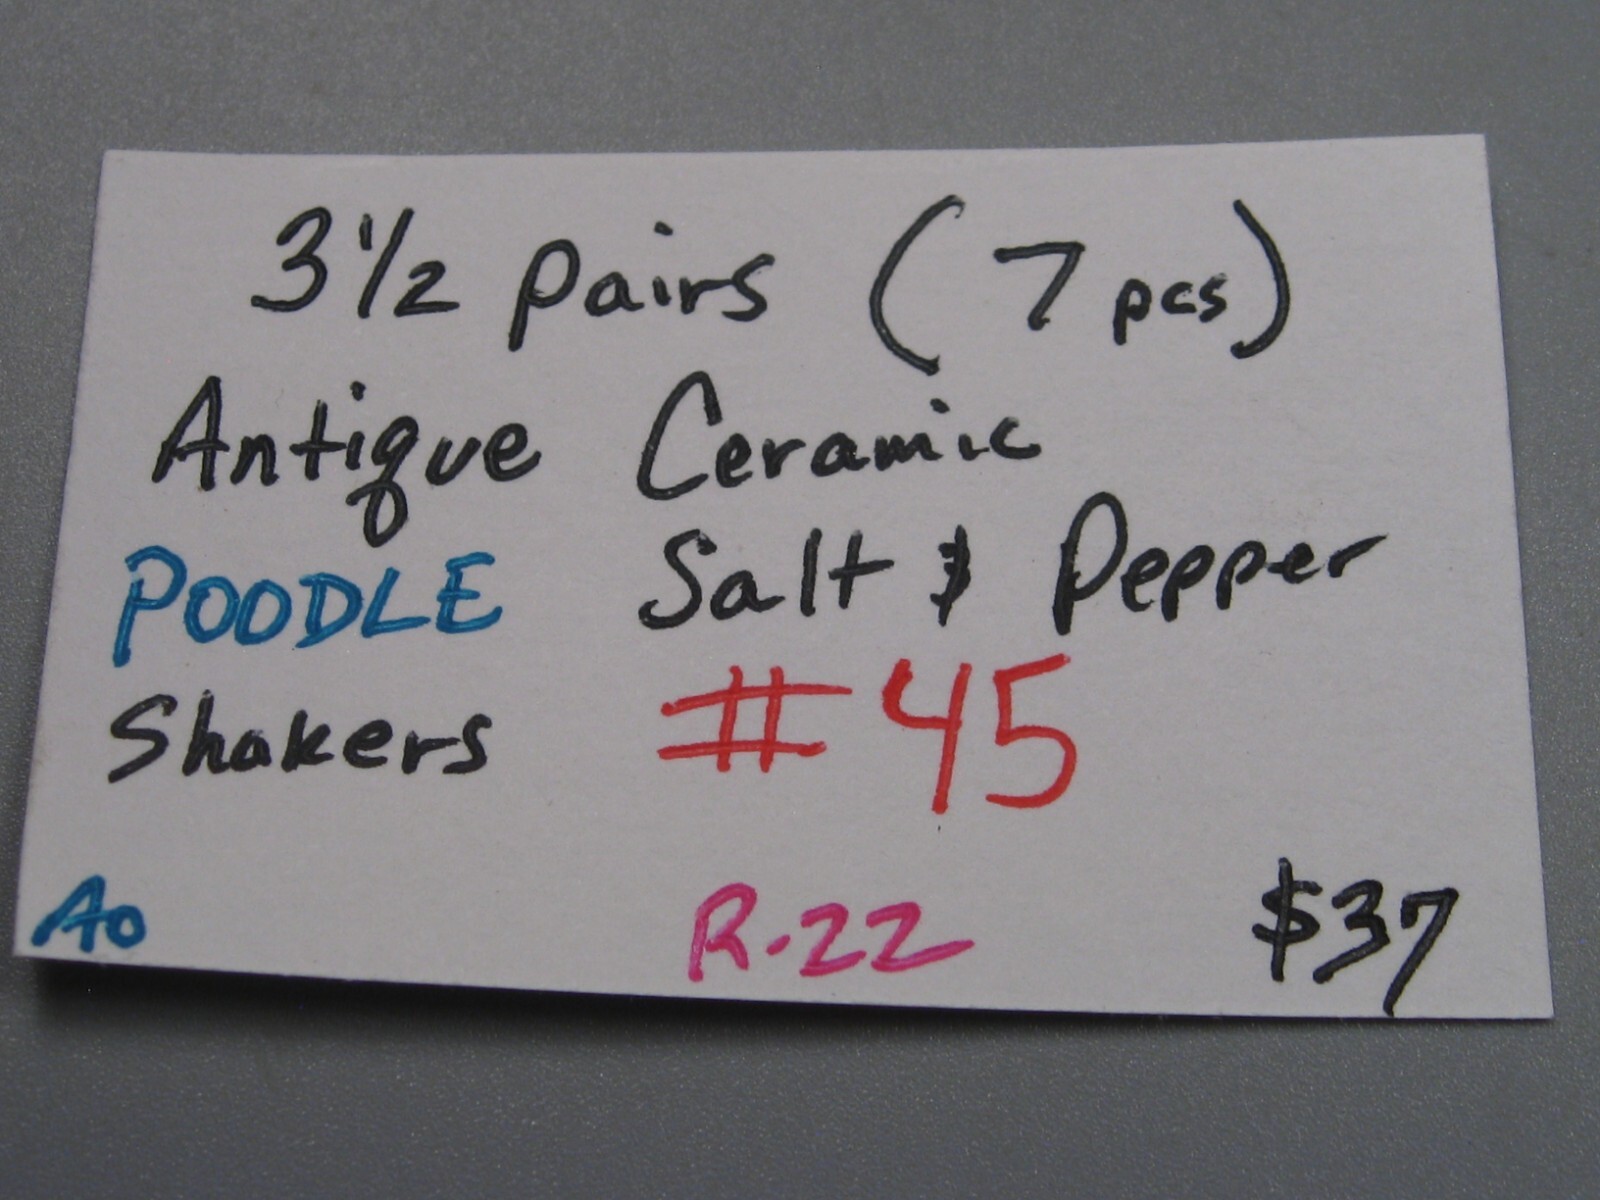 3½ pairs (7 pcs)
Antique Ceramic
POODLE Salt & Pepper
Shakers #45
AO R-22 $37